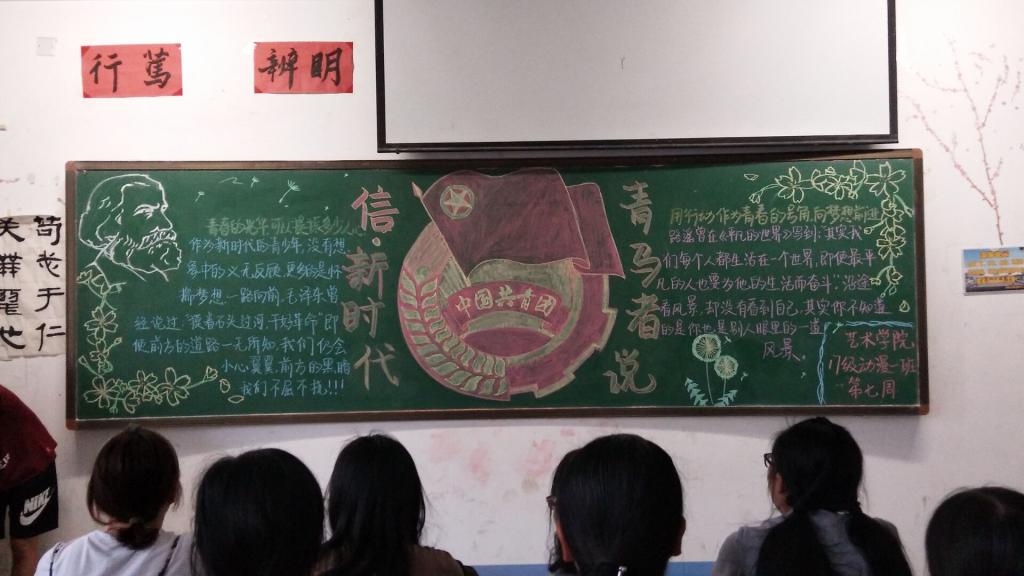 行篤
辨明
苟志于仁
信·新时代
青马者说
中国共青团
作为新时代的青少年,没有想
象中的义无反顾,更多的是怀
揣梦想一路向前,毛泽东曾
经论过"摸着石头过河,干好革命"即
使前方的道路一无所知,我们仍会
小心翼翼,前方的黑暗
我们不屈不挠!!!
用行动作为青春的号角,向梦想前进
路遥曾在《平凡的世界》写到:其实我
们每个人都生活在一个世界,即使最平
凡的人也要为他的生活而奋斗."沿途
看风景,却没有看到自己,其实你不知道
的是你也是别人眼里的一道
风景.
艺术学院
17级动漫一班
第七周
NIKE